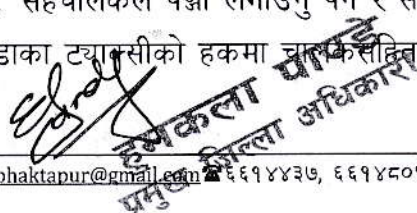 सहचालकले पञ्जा लगाउनु पर्ने र स
डाका ट्याक्सीको हकमा चालकसहित
हुमकला पाण्डे
प्रमुख जिल्ला अधिकारी
bhaktapur@gmail.com ☎६६१४४३७, ६६१४८०